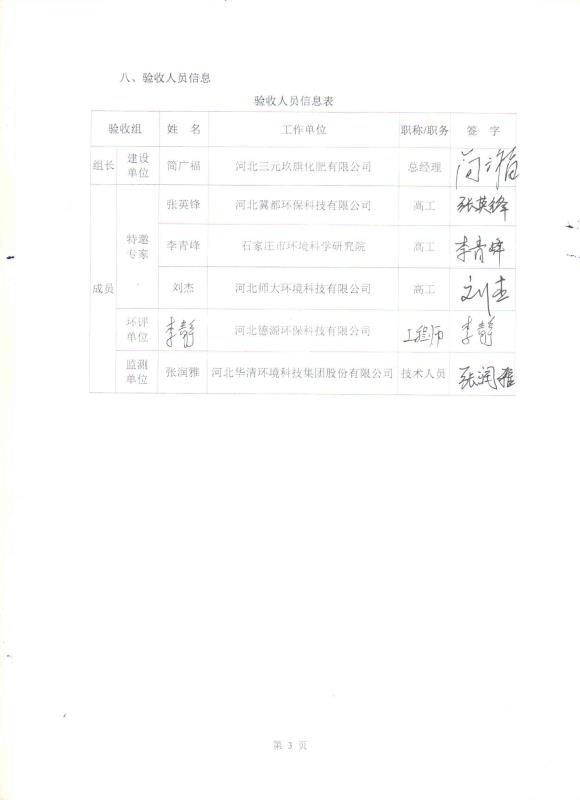 八、验收人员信息
验收人员信息表
验收组 姓 名 工作单位 职称/职务 签 字
组长 建设单位 简广福 河北三元玖旗化肥有限公司 总经理 简广福
成员 特邀专家 张英锋 河北冀都环保科技有限公司 高工 张英锋
李青峰 石家庄市环境科学研究院 高工 李青峰
刘杰 河北师大环境科技有限公司 高工 刘杰
环评单位 李静 河北德源环保科技有限公司 工程师 李静
监测单位 张润雅 河北华清环境科技集团股份有限公司 技术人员 张润雅
第 3 页